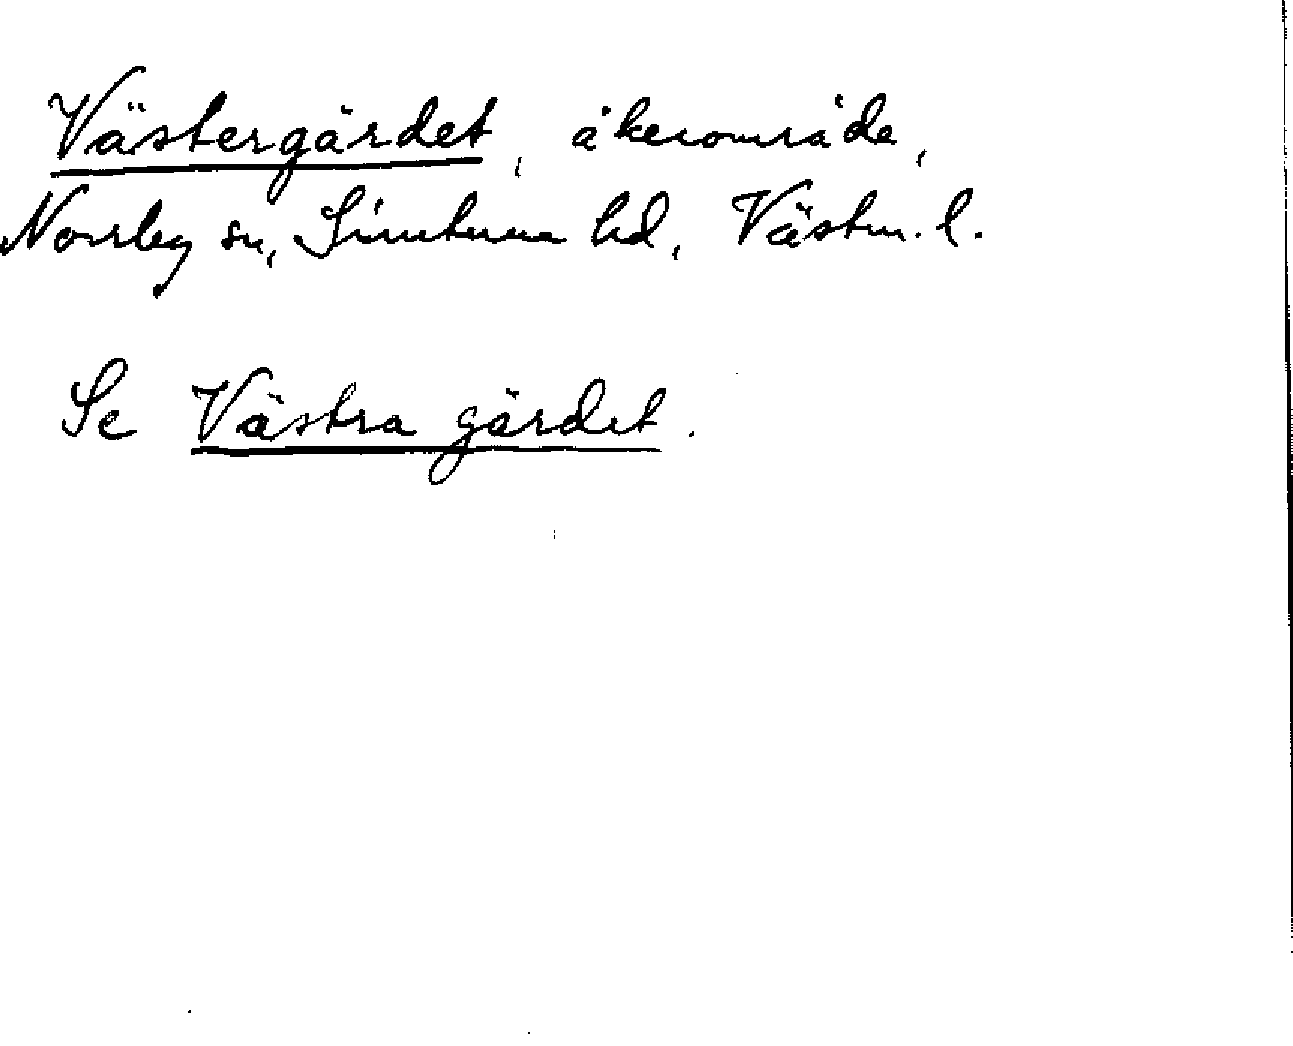 Västergärdet, åkerområde,
Norrby sn, Simtuna hd, Västm. l.
Se Västra gärdet.